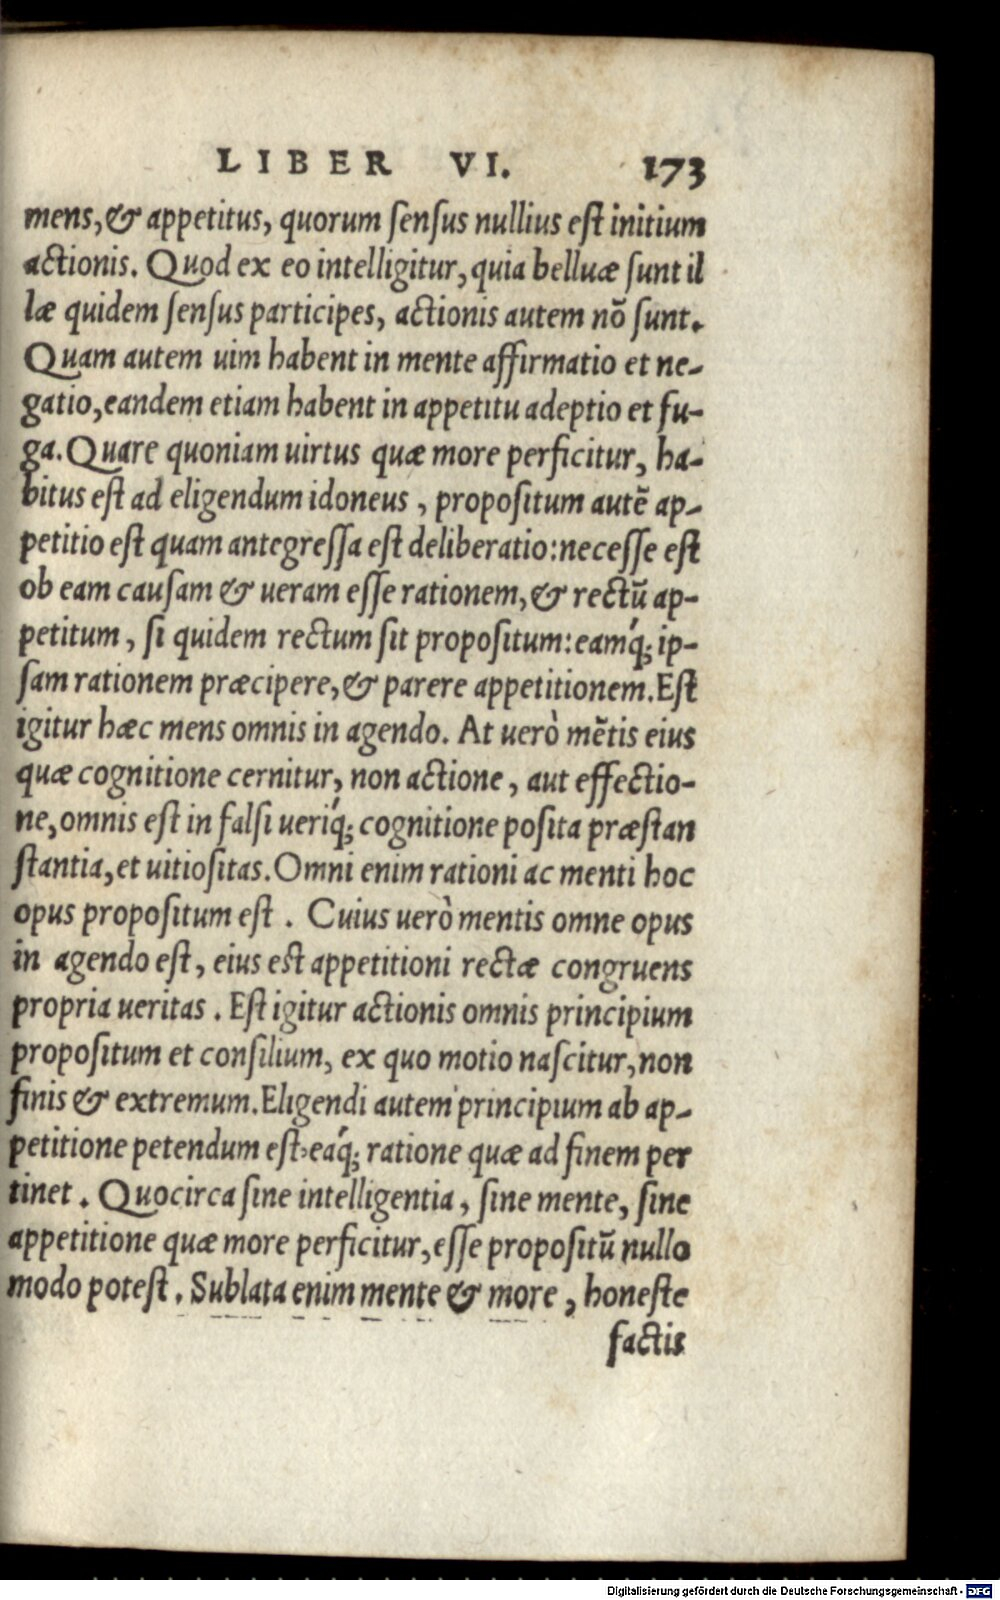 LIBER VI. 173
mens, & appetitus, quorum ſenſus nullius eſt initium
actionis. Quod ex eo intelligitur, quia belluæ ſunt il
læ quidem ſenſus participes, actionis autem nõ ſunt.
Quam autem uim habent in mente affirmatio et ne-
gatio, eandem etiam habent in appetitu adeptio et fu-
ga. Quare quoniam uirtus quæ more perficitur, ha-
bitus eſt ad eligendum idoneus, propoſitum autẽ ap-
petitio eſt quam antegreſſa eſt deliberatio: neceſſe eſt
ob eam cauſam & ueram eſſe rationem, & rectũ ap-
petitum, ſi quidem rectum ſit propoſitum: eamq́; ip-
ſam rationem præcipere, & parere appetitionem. Eſt
igitur hæc mens omnis in agendo. At uerò mẽtis eius
quæ cognitione cernitur, non actione, aut effectio-
ne, omnis eſt in falſi ueriq́; cognitione poſita præſtan
ſtantia, et uitioſitas. Omni enim rationi ac menti hoc
opus propoſitum eſt. Cuius uerò mentis omne opus
in agendo eſt, eius est appetitioni rectæ congruens
propria ueritas. Eſt igitur actionis omnis principium
propoſitum et conſilium, ex quo motio naſcitur, non
finis & extremum. Eligendi autem principium ab ap-
petitione petendum eſt, eaq́; ratione quæ ad finem per
tinet. Quocirca ſine intelligentia, ſine mente, ſine
appetitione quæ more perficitur, eſſe propoſitũ nullo
modo poteſt. Sublata enim mente & more, honeſte
factis
Digitalisierung gefördert durch die Deutsche Forschungsgemeinschaft - DFG